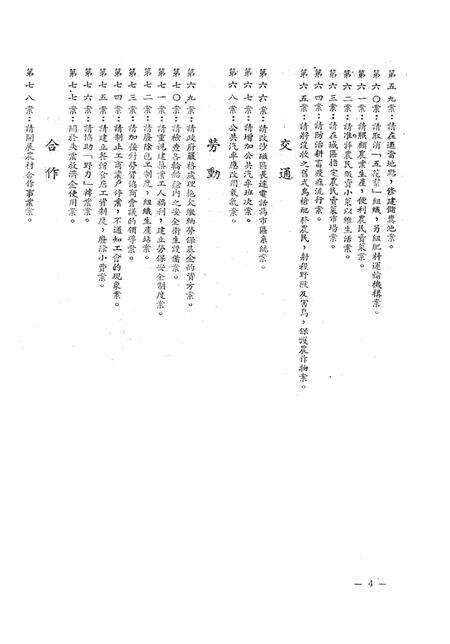 第五九案：請在適當地點，修建儲糞池案。
第六〇案：請取消「五花幫」組織，另組肥料運輸機構案。
第六一案：請照顧農業生產，便利農民賣菜案。
第六二案：請准許農民販賣小菜以維生活案。
第六三案：請在城區指定農民賣菜市場案。
第六四案：請防治耕畜瘟疫流行案。
第六五案：請將沒收之舊式鳥槍配發農民，射殺野獸及害鳥，保護農作物案。
交通
第六六案：請改沙磁區長途電話為市區系統案。
第六七案：請增加公共汽車班次案。
第六八案：公共汽車應改用氣案。
勞動
第六九案：請政府嚴格處理拖欠繳納勞保基金的資方案。
第七〇案：請檢查各輪船艙內之安全衛生設備案。
第七一案：請重視建築工人福利，建立勞保安全制度案。
第七二案：請廢除包工制度，組織生產站案。
第七三案：請加強對勞資協商會議的領導案。
第七四案：請制止工商業戶停業，不通知工會的現象案。
第七五案：請建立餐館合店工資制度，廢除小費案。
第七六案：請協助「野力」轉業案。
第七七案：關於失業救濟金使用案。
合作
第七八案：請開展農村合作事業案。
— 4 —